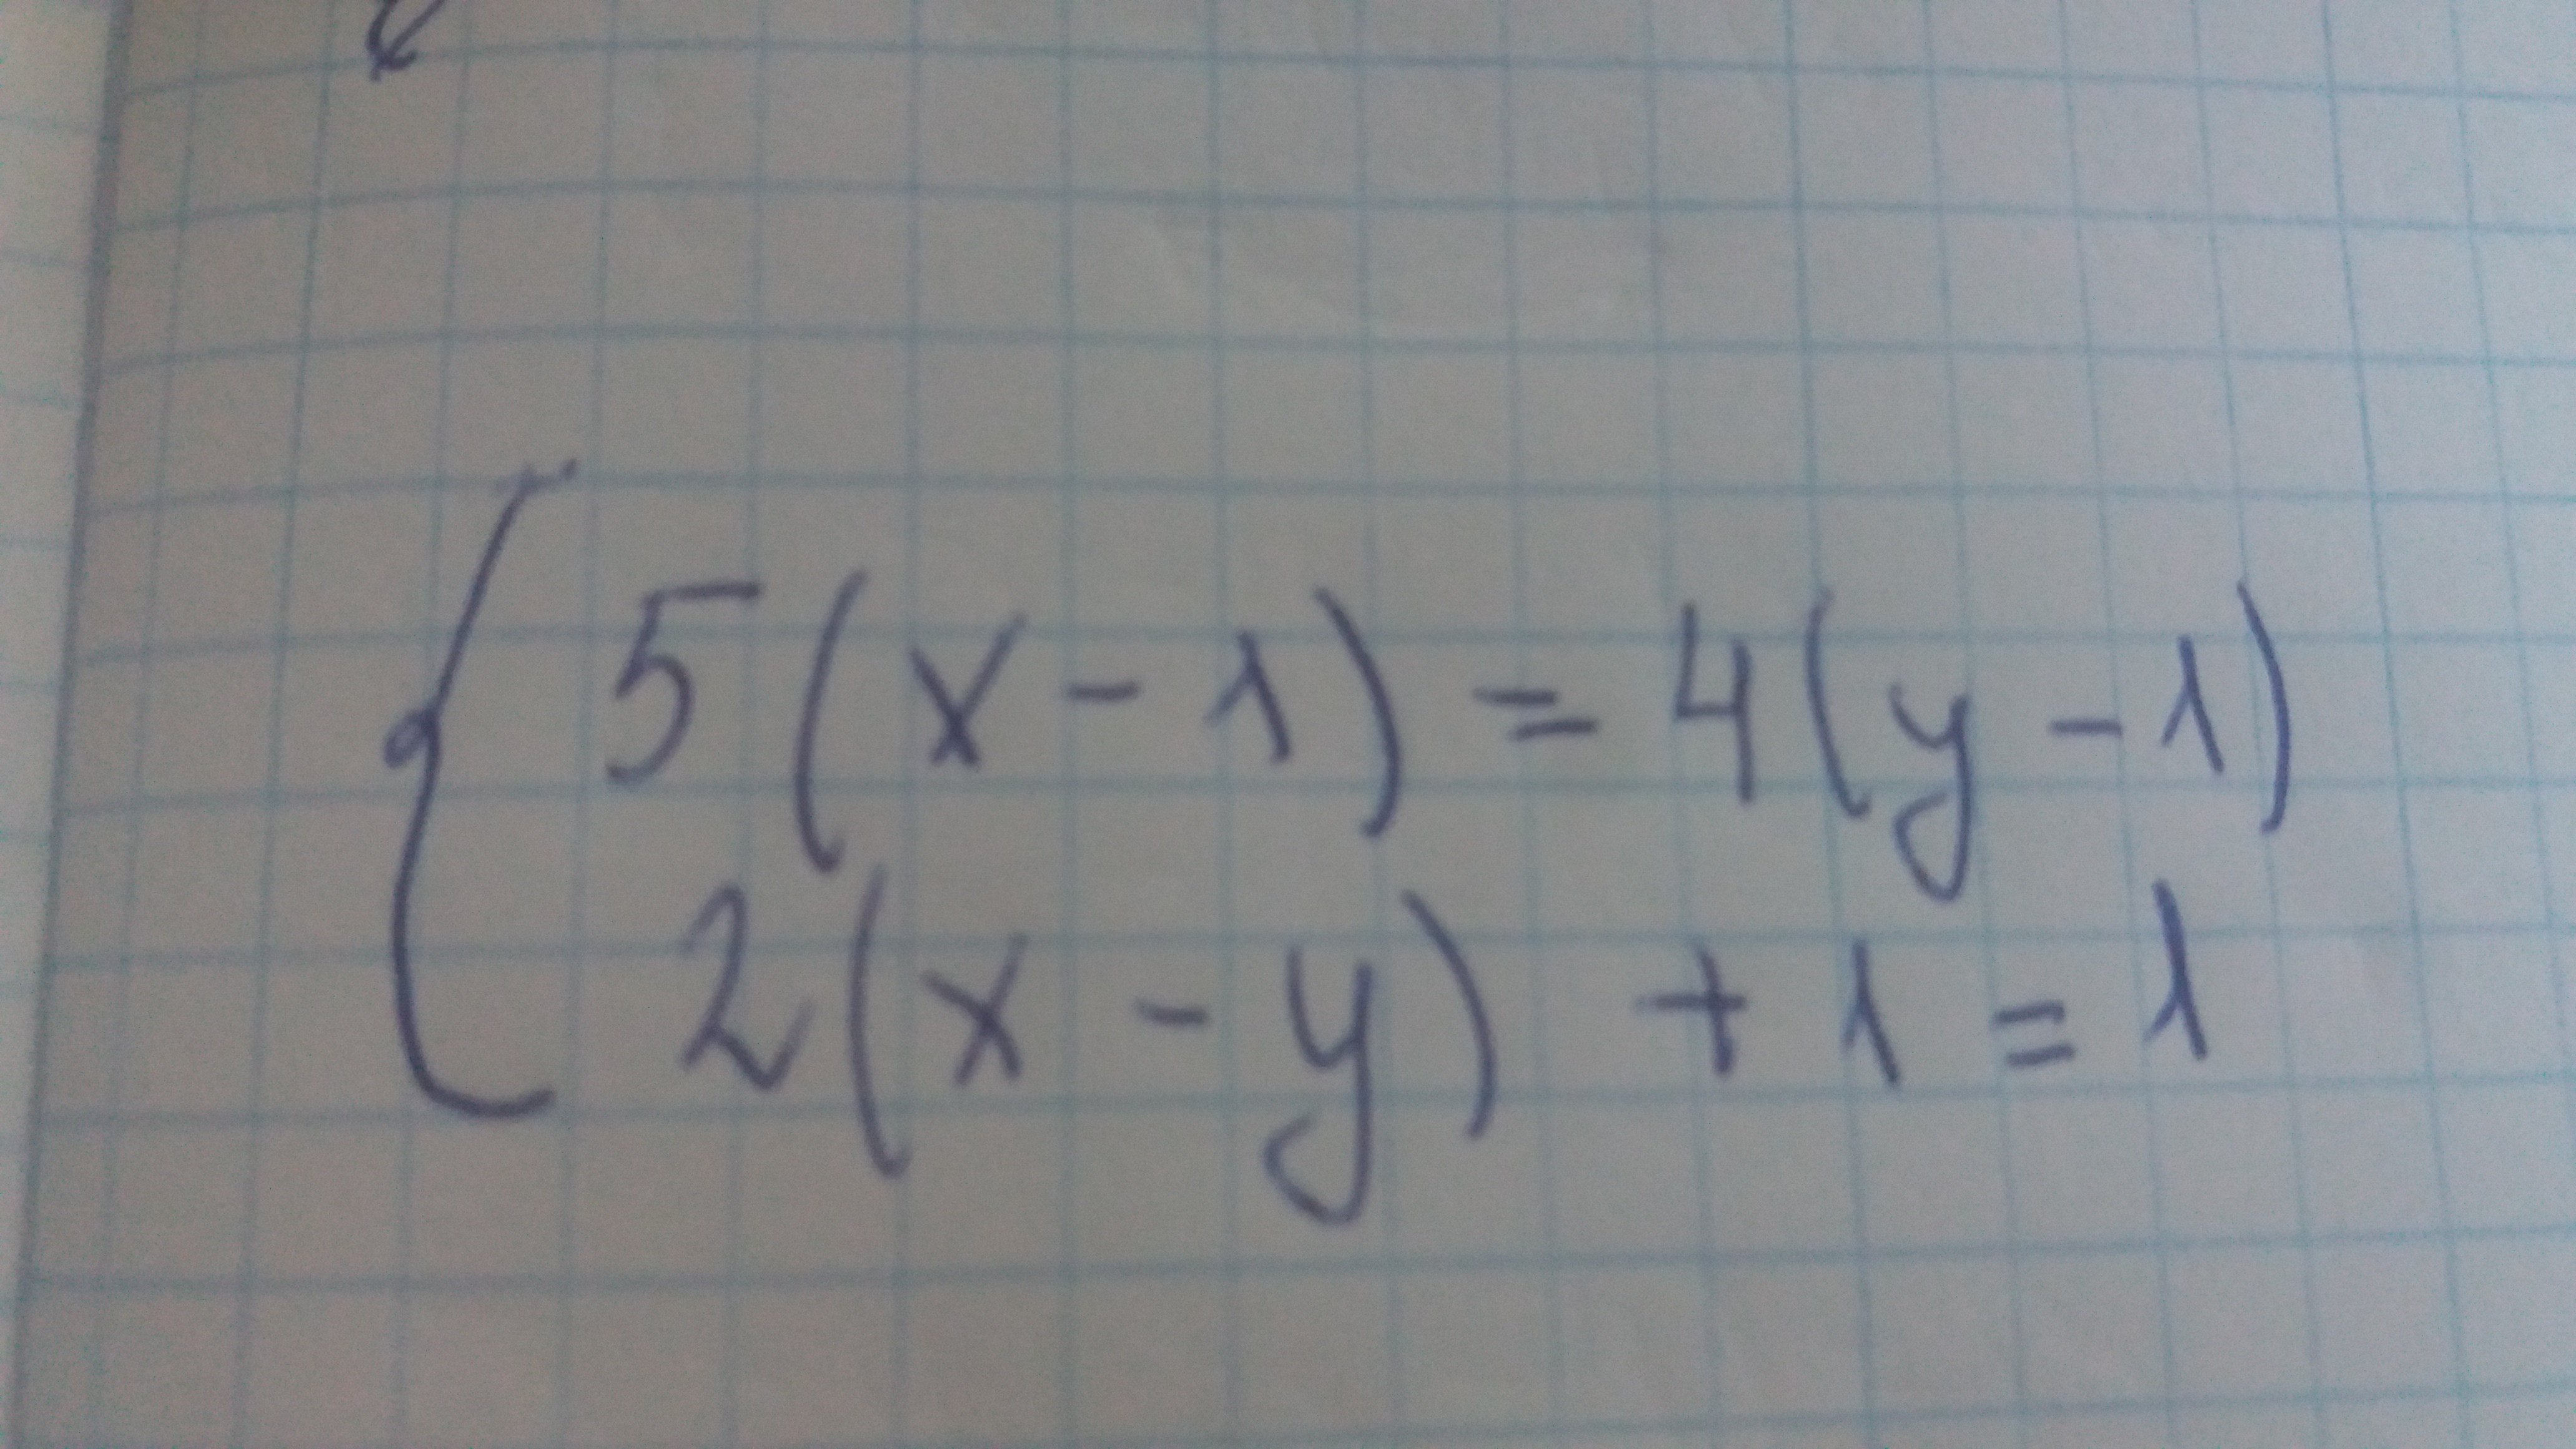 5(x-1)=4(y-1)
2(x-y)+1=1